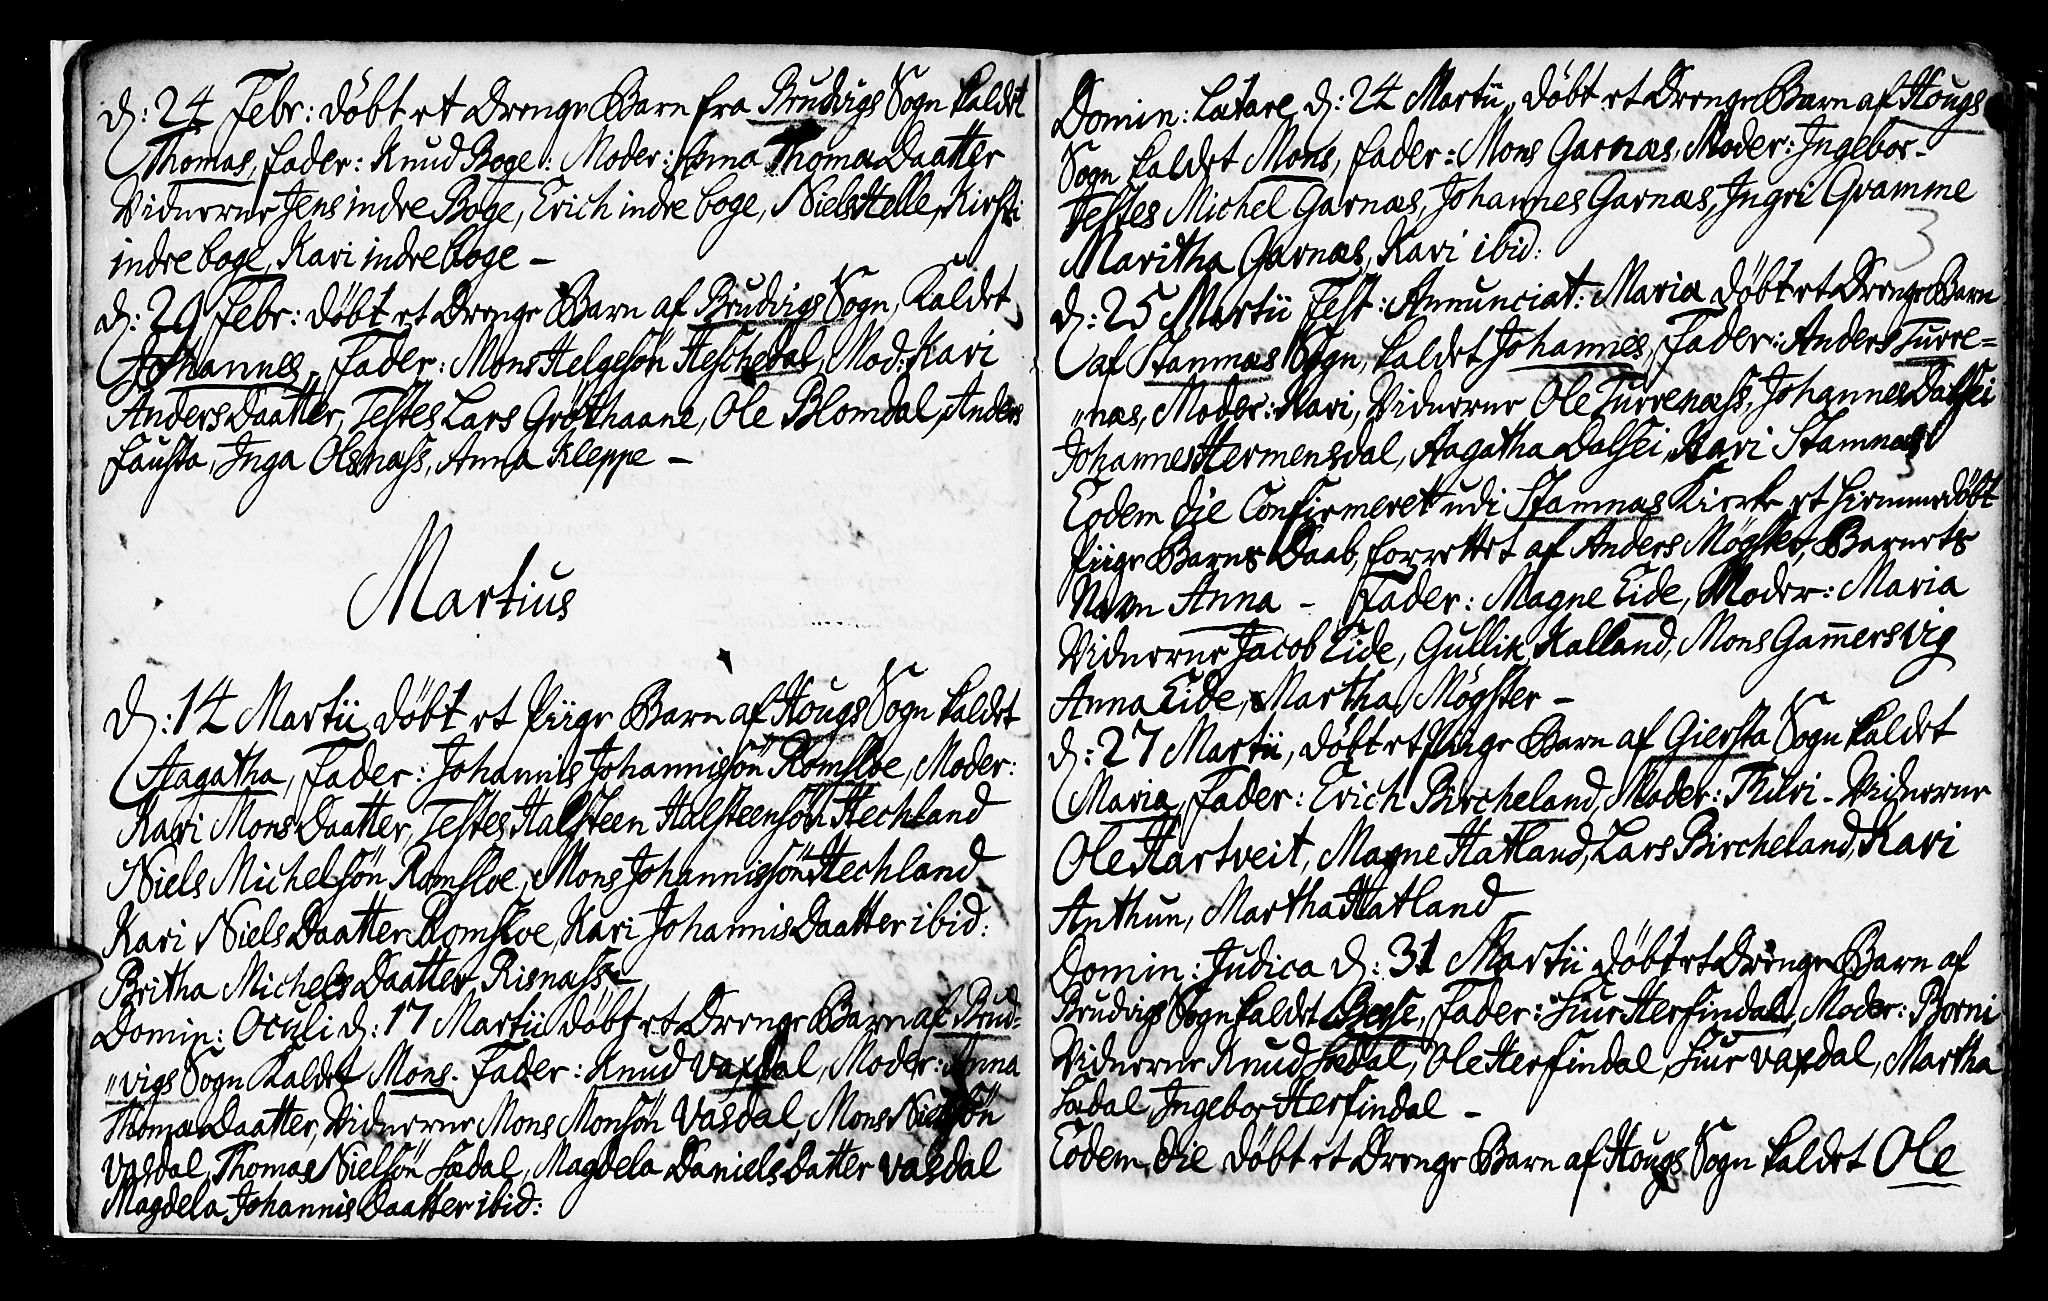 D: 24 Febr: döbt et Drenge Barn fra Brudvigs Sogn kaldet
Thomas, Fader: Knud Boge: Moder: Anna Thomædaatter
Vidnerne Jens indre Boge, Erich indre boge, Niels Helle, Kirsti
indre boge, Kari indre boge –
d: 29 Febr: döbt et Drenge Barn af Brudvigs Sogn, Kaldet
Johannes, Fader: Mons Helgesön Heschedal, Mod: Kari
Anders Daatter, Testes Lars Gröthaane, Ole Blomdal, Anders
Fausta, Inga Olsnass, Anna Kleppe –
Martius
D: 14 Martii döbt et Piige Barn af Hougs Sogn kaldet
Aagatha, Fader: Johannis Johannissön Romsloe, Moder:
Kari Mons Daatter, Testes Halsteen Halsteensön Hechland
Niels Michelsön Romsloe, Mons Johannissön Hechland
Kari Niels Daatter Romsloe, Kari Johannis Daatter ibid:
Britha Michels Daatter, Risnass –
Domin: Oculi d: 17 Martii döbt et Drenge Barn af Brud=
„vigs Sogn Kaldet Mons. Fader: Knud Vaxdal, Moder: Anna
Thomæ Daatter, Vidnerne Mons Monsön Vasdal, Mons Nielssön
Vasdal, Thomas Nielsön Sædal, Magdela Daniels datter Vasdal
Magdela Johannis Daatter ibid:
Domin: Lætare d: 24 Martii, döbt et Drenge Barn af Hougs
Sogn kaldet Mons, Fader: Mons Garnæs, Moder: Ingebor –
Testes Michel Garnæs, Johannes Garnæs, Ingri Gramme
Maritha Garnæs, Kari ibid:
3
d: 25 Martii Fest: Annunciat: Maria döbt et Drenge Barn
af Stamnæs Sogn, kaldet Johannes, Fader: Anders Turre=
„næs, Moder: Kari, Vidnerne Ole Turrenæss, Johannes Dalsei
Johannes Hermensdal, Aagatha Dalsei, Kari Stamnæs
Eodem die Confirmeret udi Stamnæs Kirche et hiemmedöbt
Piige Barns Daab, forrettet af Anders Mögster, Barnets
Navn Anna – Fader: Magne Eide, Moder: Maria
Vidnerne Jacob Eide, Gullik Kalland, Mons Gam̅ersvig
Anna Eide, Martha Mögster –
d: 27 Martii, döbt et Piige Barn af Giersta Sogn kaldet
Maria, Fader: Erich Bircheland, Moder: Thuri – Vidnerne
Ole Hartveit, Magne Hatland, Lars Bircheland, Kari
Anthun, Martha Hatland
Domin: Judica d: 31 Martii döbt et Drenge Barn af
Brudvigs Sogn kaldet Fader: Siur Herfindal, Moder: Borni
Vidnerne Knud Sædal, Ole Herfindal, Siur Vaxdal, Martha
Sædal, Ingebor Herfindal –
Eodem die döbt et Drenge Barn af Hougs Sogn kaldet Ole